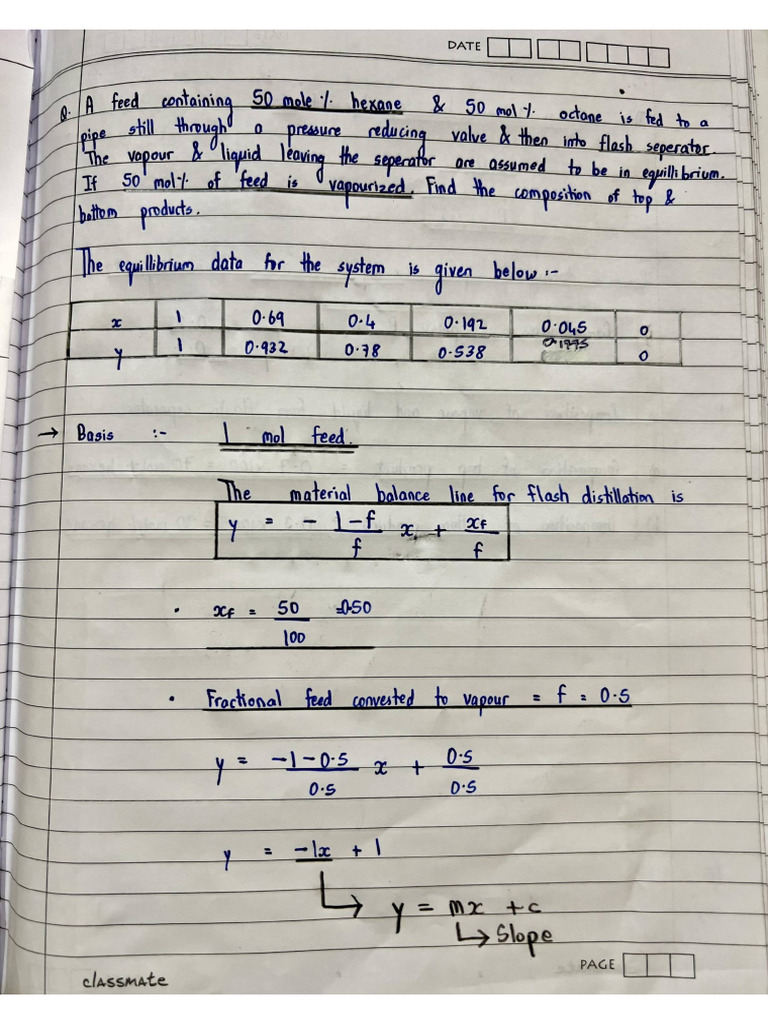 DATE
Q. A feed containing 50 mole % hexane & 50 mol % octane is fed to a
pipe still through a pressure reducing valve & then into flash seperator.
The vapour & liquid leaving the seperator are assumed to be in equillibrium.
If 50 mol% of feed is vapourized. Find the composition of top &
bottom products.
The equillibrium data for the system is given below :-
x 1 0.69 0.4 0.192 0.045 0
y 1 0.932 0.78 0.538 0.1775 0
→ Basis :- 1 mol feed.
The material balance line for flash distillation is
y = - 1-f/f x + xF/f
• xF = 50/100 = 0.50
• Fractional feed convested to vapour = f = 0.5
y = -1-0.5/0.5 x + 0.5/0.5
y = -1x + 1
↳ y = mx + c
↳ Slope
PAGE
classmate